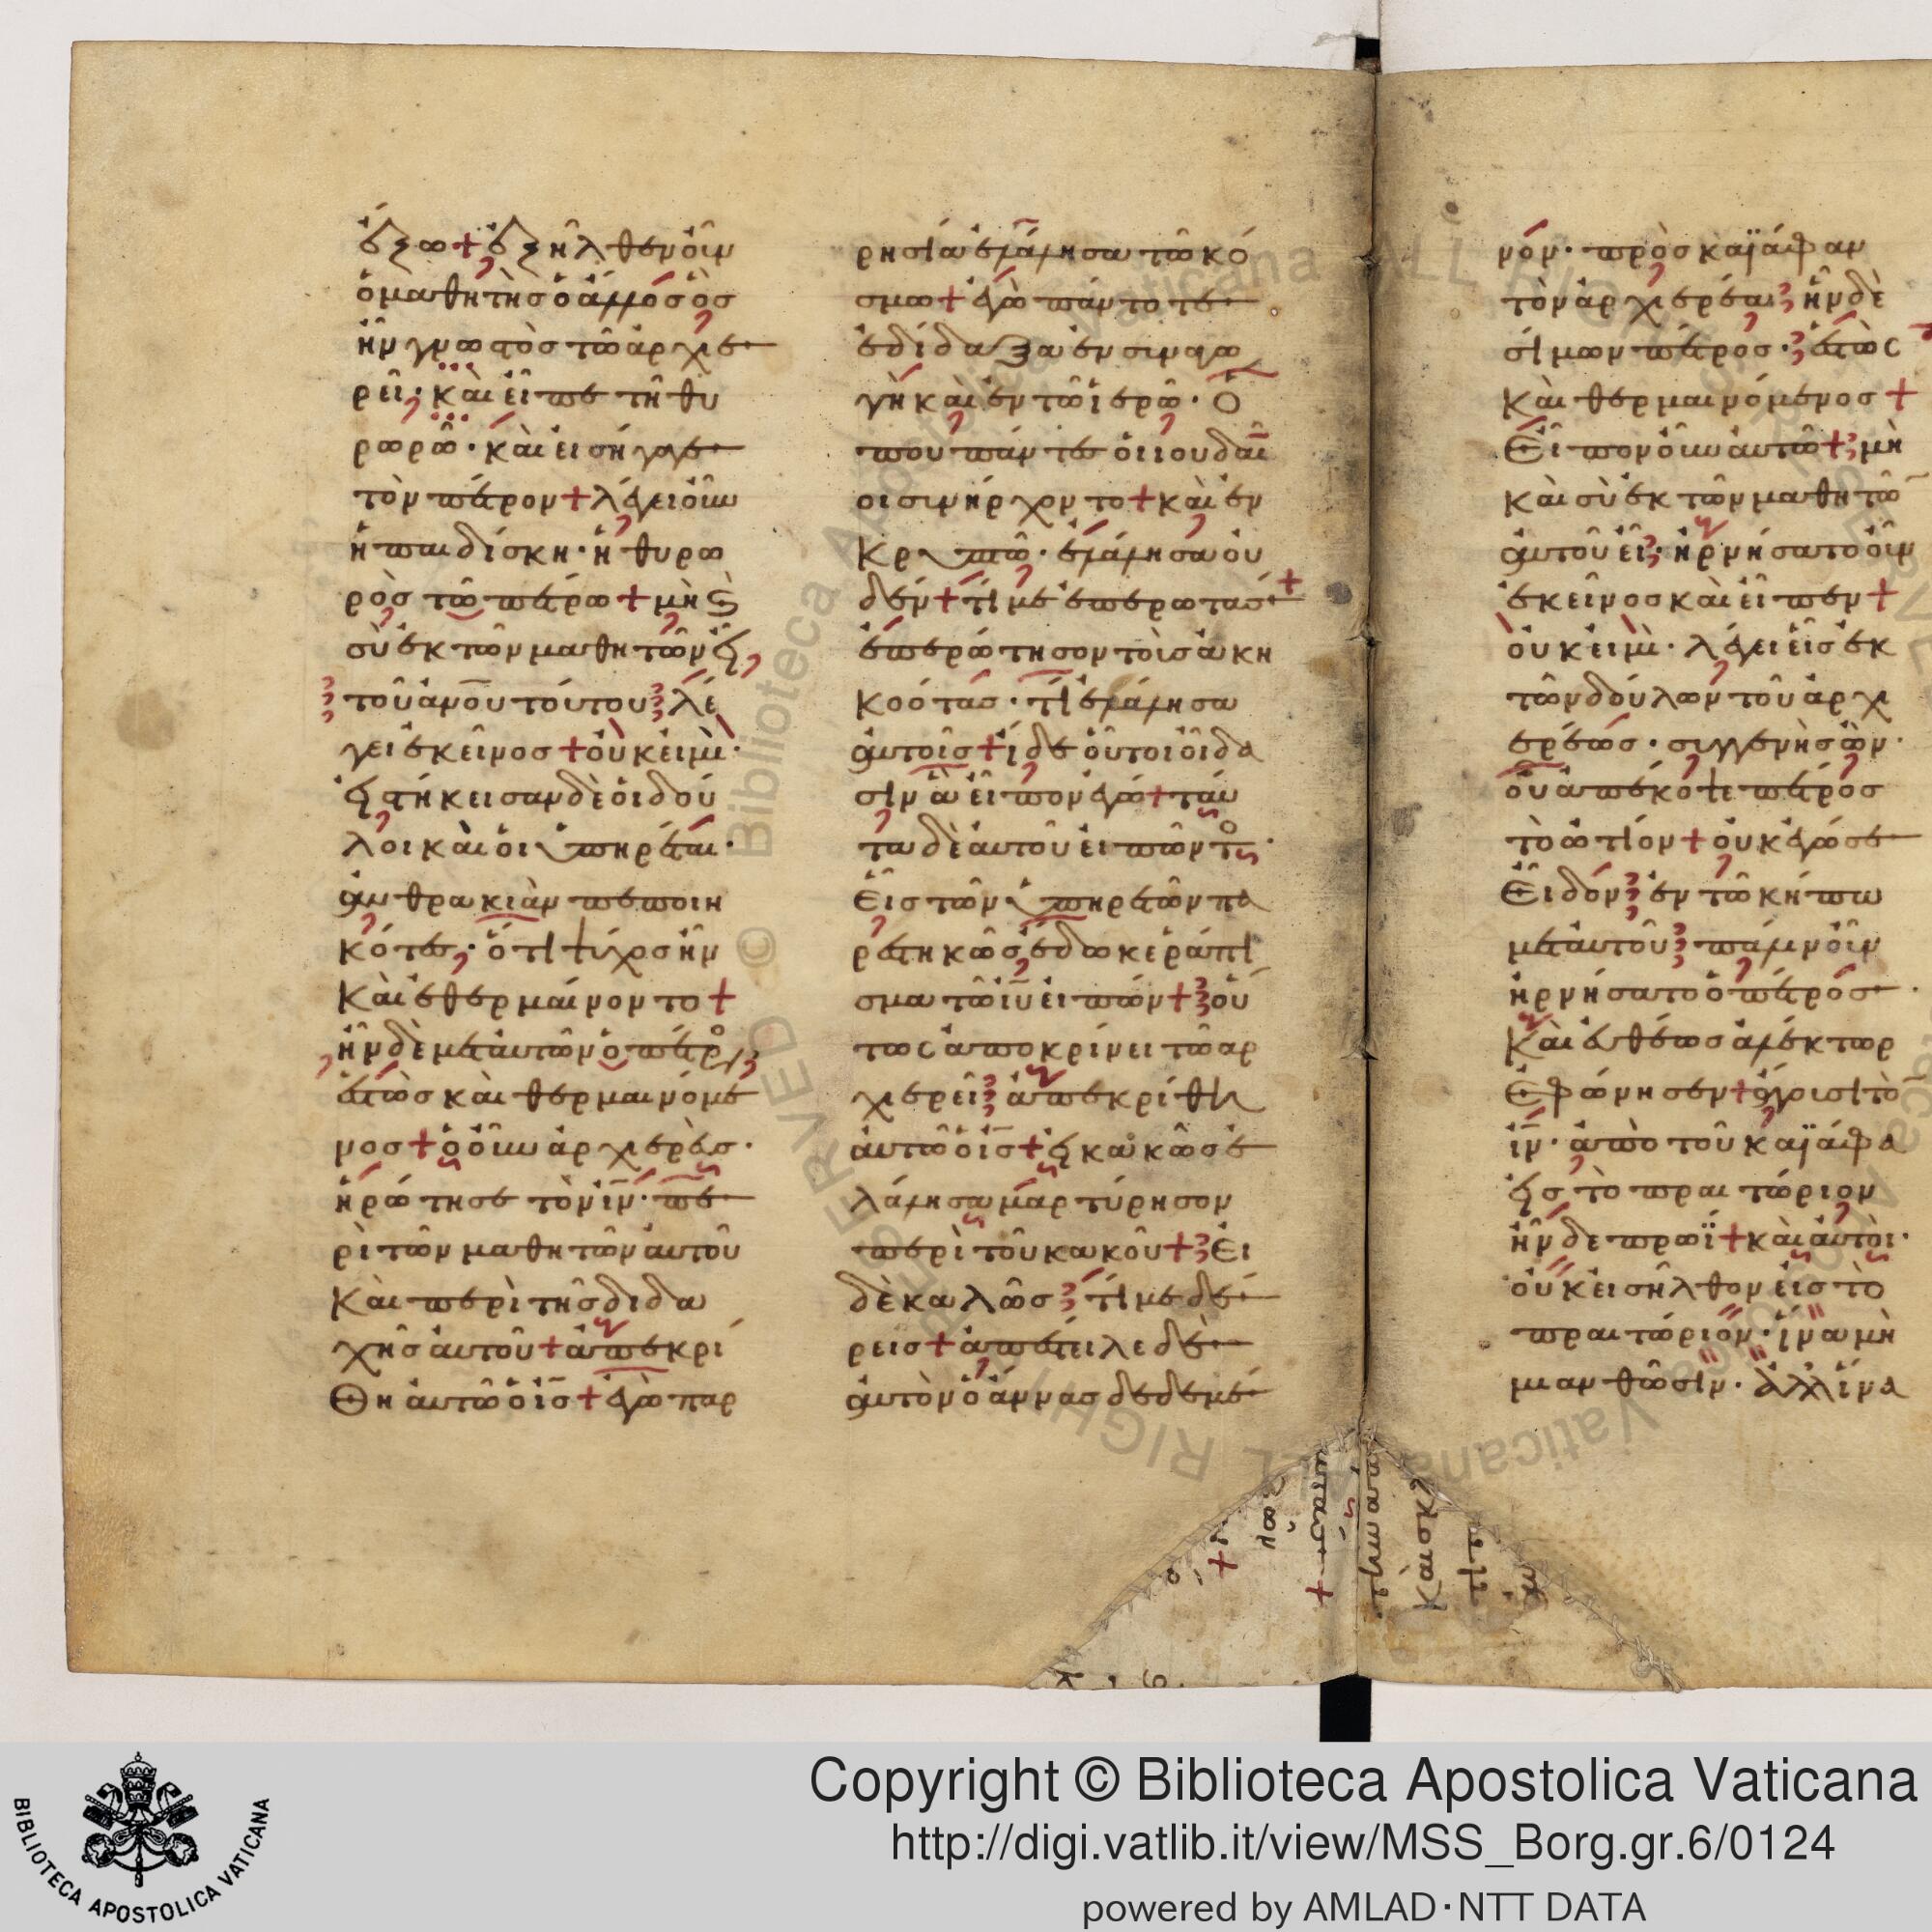 ἔξω + ἐξῆλθεν οὖν
ὁ μαθητὴς ὁ ἄλλος ὃς
ἦν γνωστὸς τῶ ἀρχιε
ρεῖ· καὶ εἶπε τῆ θυ
ρωρῶ· καὶ εἰσήγαγε
τὸν πέτρον + λέγει οὖν
ἡ παιδίσκη· ἡ θυρω
ρὸς τῶ πέτρω + μὴ ϗ
σὺ ἐκ τῶν μαθητῶν εἶ
τοῦ ἀνου τούτου λέ
γει ἐκεῖνος + οὐκ εἰμὶ·
ἑστήκεισαν δὲ οἱ δοῦ
λοι καὶ οἱ ὑπηρέται·
ἀνθρακιὰν πεποιη
κότες· ὅτι ψύχος ἦν
καὶ ἐθερμαίνοντο +
ἦν δὲ μετ αὐτῶν ὁ πέτρο
ἑστὼς καὶ θερμαινόμε
νος + ὁ οὖν ἀρχιερεὺς·
ἠρώτησε τὸν ιν· πε
ρὶ τῶν μαθητῶν αὐτοῦ
καὶ περὶ τῆς διδα
χῆς αὐτοῦ + ἀπεκρί
θη αὐτῶ ὁ ις + ἐγὼ παρ
ρησία ἐλάλησα τῶ κό
σμω + ἐγὼ πάντοτε
ἐδίδαξα ἐν συναγω
γῆ καὶ ἐν τῶ ἱερῶ· ὅ
που πάντες οἱ ιουδαῖ
οι συνέρχονται + καὶ ἐν
κρυπτῶ· ἐλάλησα οὐ
δέν + τί με ἐπερωτᾶς +
ἐπερώτησον τοὺς ἀκη
κοότας· τί ἐλάλησα
αὐτοῖς + ἴδε οὗτοι οἴδα
σιν ἃ εἶπον ἐγώ + ταῦ
τα δὲ αὐτοῦ εἰπόντο·
εἷς τῶν ὑπηρετῶν πα
ρεστηκὼς ἔδωκε ῥάπι
σμα τῶ ιυ εἰπών + οὕ
τως ἀποκρίνει τῶ ἀρ
χιερεῖ ἀπεκρίθη
αὐτῶ ὁ ις + εἰ κακῶς ἐ
λάλησα μαρτύρησον
περὶ τοῦ κακοῦ + εἰ
δὲ καλῶς τί με δέ
ρεις + ἀπέστειλε δὲ
αὐτὸν ὁ ἄννας δεδεμέ
νον· πρὸς καϊάφαν
τὸν ἀρχιερέα ἦν δὲ
σίμων πέτρος· ἑστὼς
καὶ θερμαινόμενος +
εἶπον οὖν αὐτῶ + μὴ
καὶ σὺ ἐκ τῶν μαθητῶ
αὐτοῦ εἶ· ἠρνήσατο οὖν
ἐκεῖνος καὶ εἶπεν +
οὐκ εἰμὶ· λέγει εἷς ἐκ
τῶν δούλων τοῦ ἀρχι
ερέως· συγγενὴς ὢν·
οὗ ἀπέκοψε πέτρος
τὸ ὠτίον + οὐκ ἐγώ σε
εἶδον ἐν τῶ κήπω
μετ αὐτοῦ πάλιν οὖν
ἠρνήσατο ὁ πέτρος·
καὶ εὐθέως ἀλέκτωρ
ἐφώνησεν + ἄγουσι τὸ
ιν· ἀπὸ τοῦ καϊάφα
εἰς τὸ πραιτώριον
ἦν δε πρωΐ + καὶ αὐτοὶ·
οὐκ εἰσῆλθον εἰς τὸ
πραιτώριον· ἵνα μὴ
μιανθῶσιν· ἀλλ ἵνα